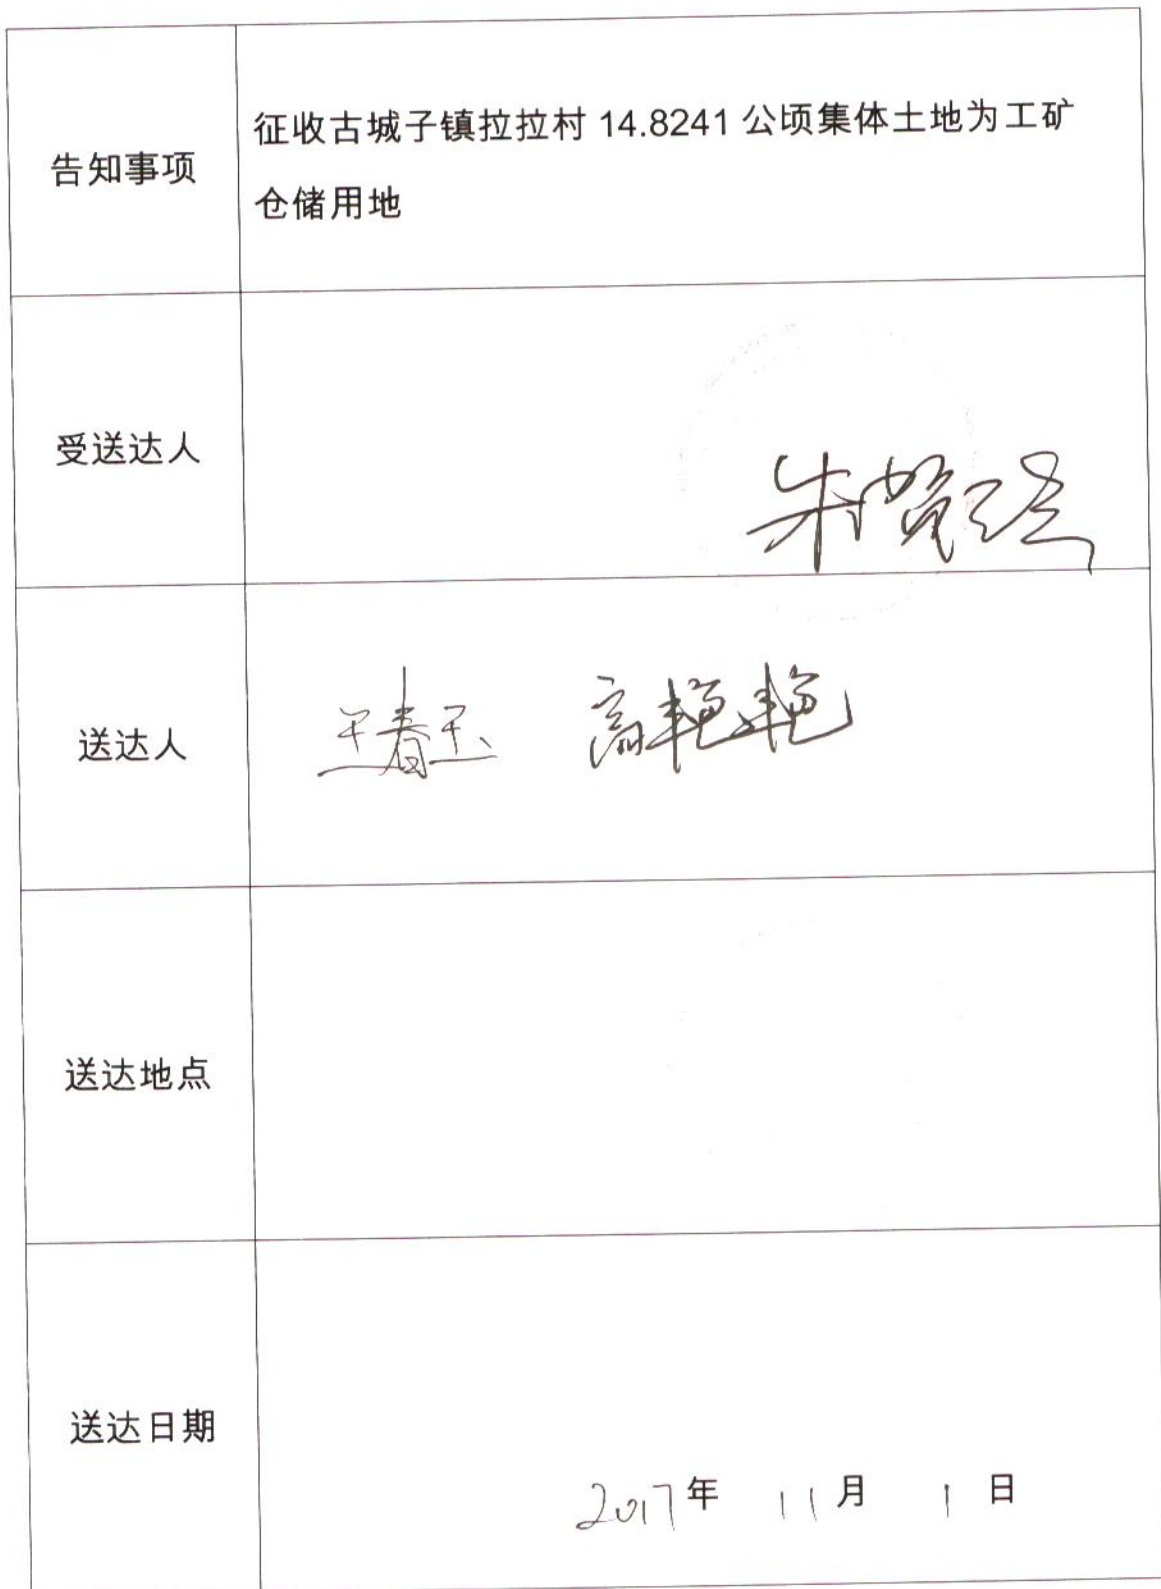 告知事项
征收古城子镇拉拉村 14.8241 公顷集体土地为工矿
仓储用地
受送达人
送达人
王春玉 高艳艳
送达地点
送达日期
2017年 11月 1日